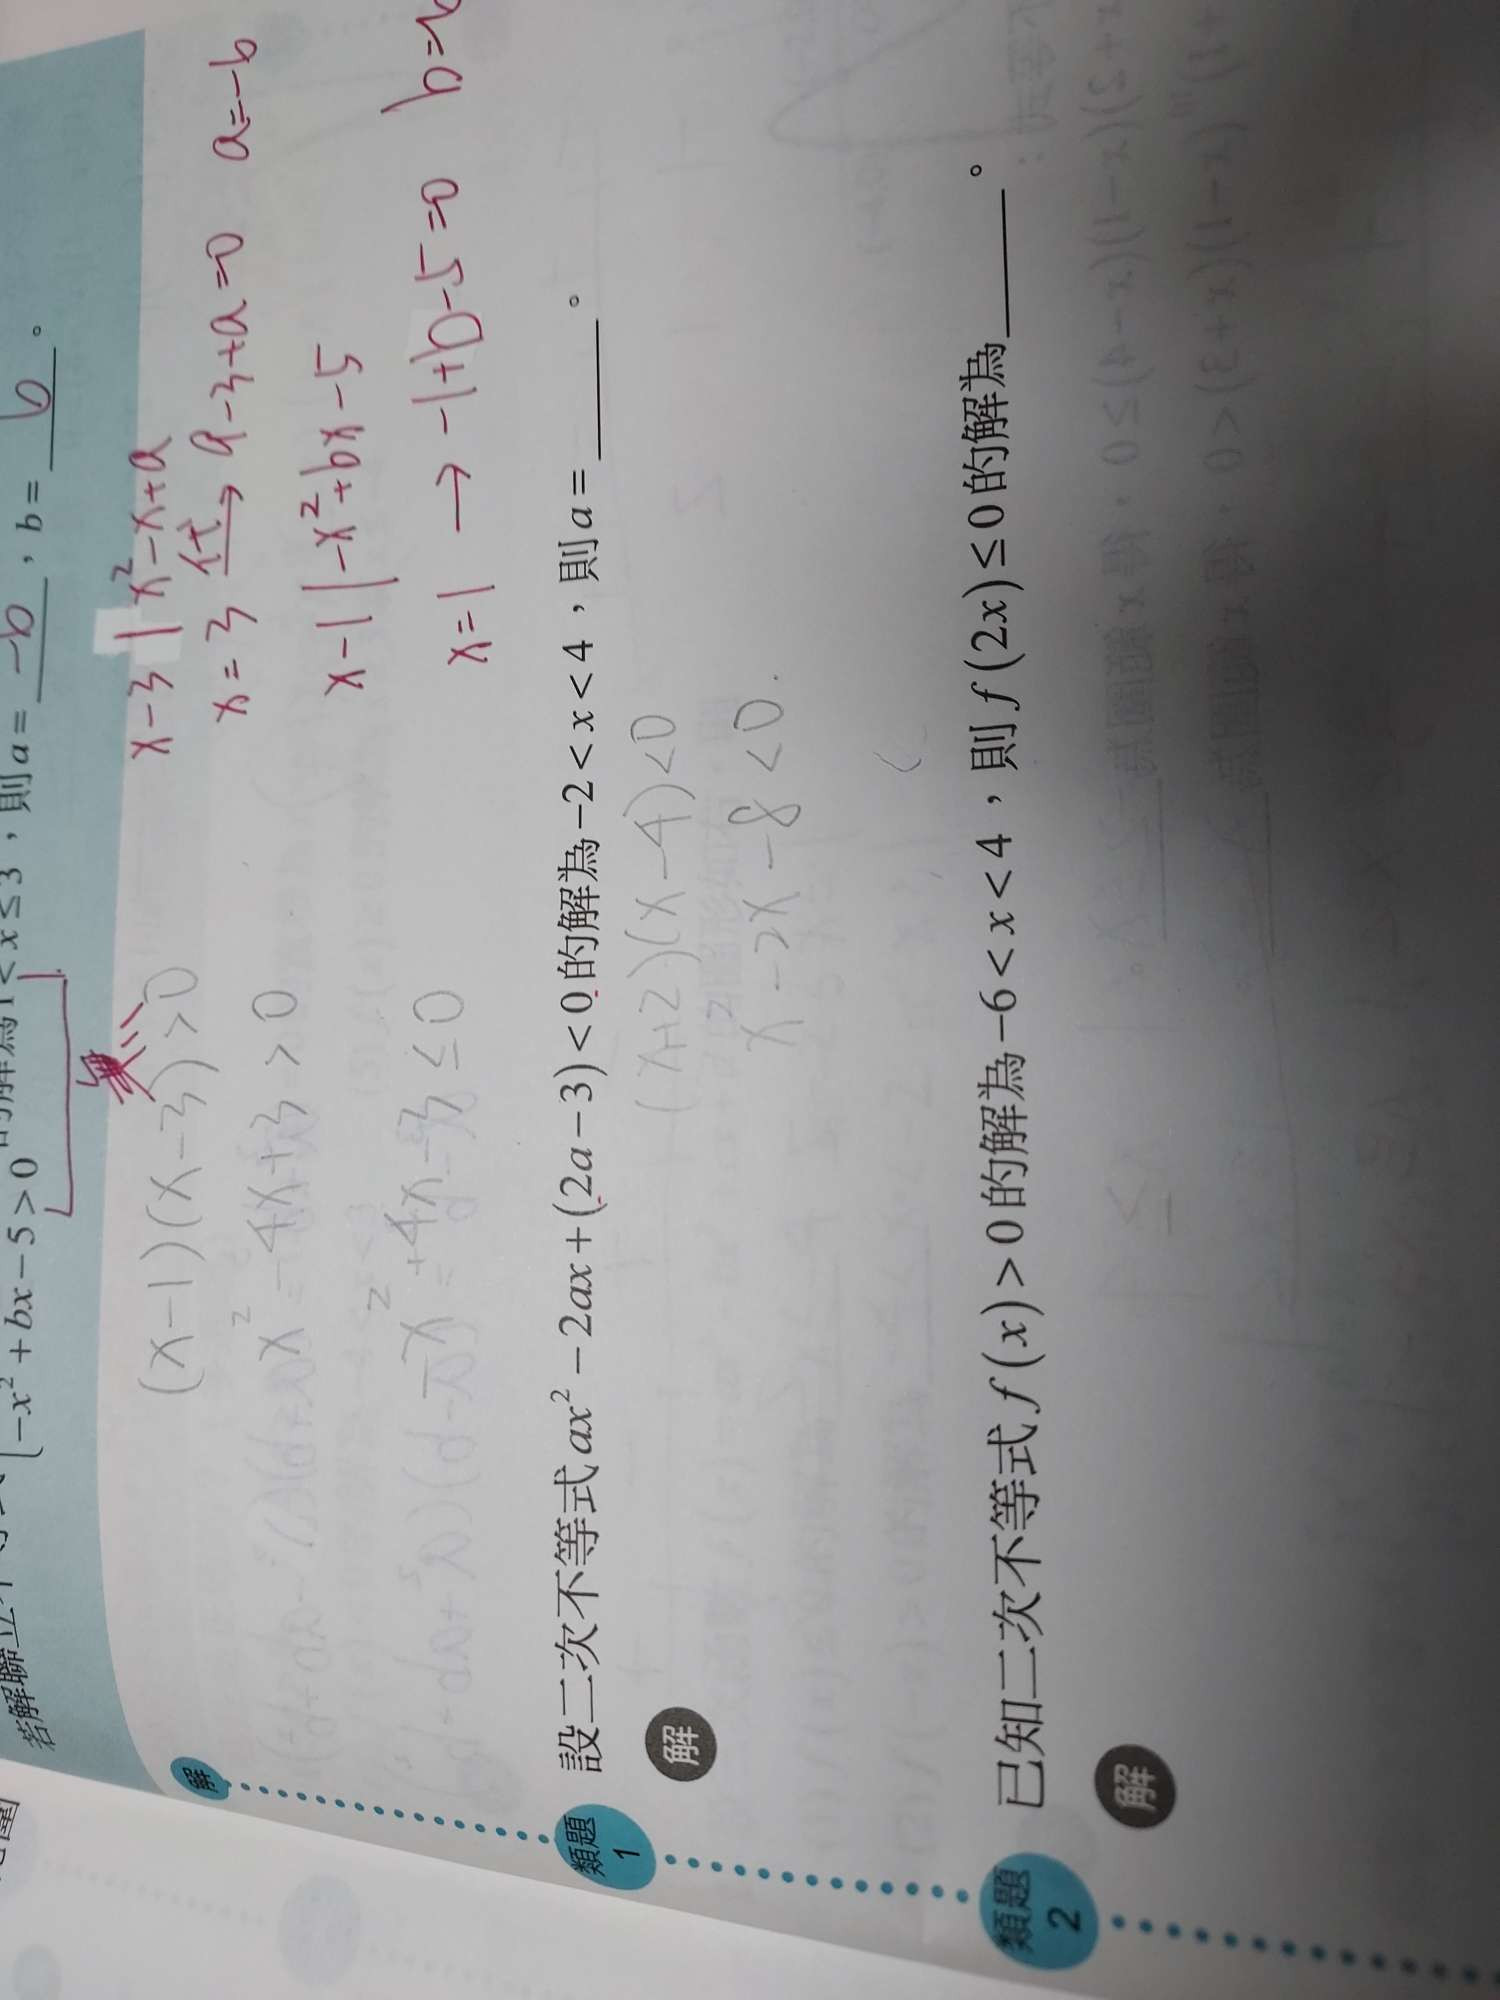 若解聯立不等式
-x² + bx - 5 > 0 的解為 1 < x ≤ 3，則 a = -6，b = 6。
解
(x-1)(x-3)>0
x²-4x+3>0
-x²+4x-3≤0
x-3 | x²-x+a
x=3 代→ 9-3+a=0 a=-6
x-1 | -x²+bx-5
x=1 → -1+b-5=0 b=6
類題1
設二次不等式 ax² - 2ax + (2a - 3) < 0 的解為 -2 < x < 4，則 a = ______。
解
(x+2)(x-4)<0
x-2x-8<0.
類題2
已知二次不等式 f(x) > 0 的解為 -6 < x < 4，則 f(2x) ≤ 0 的解為______。
解